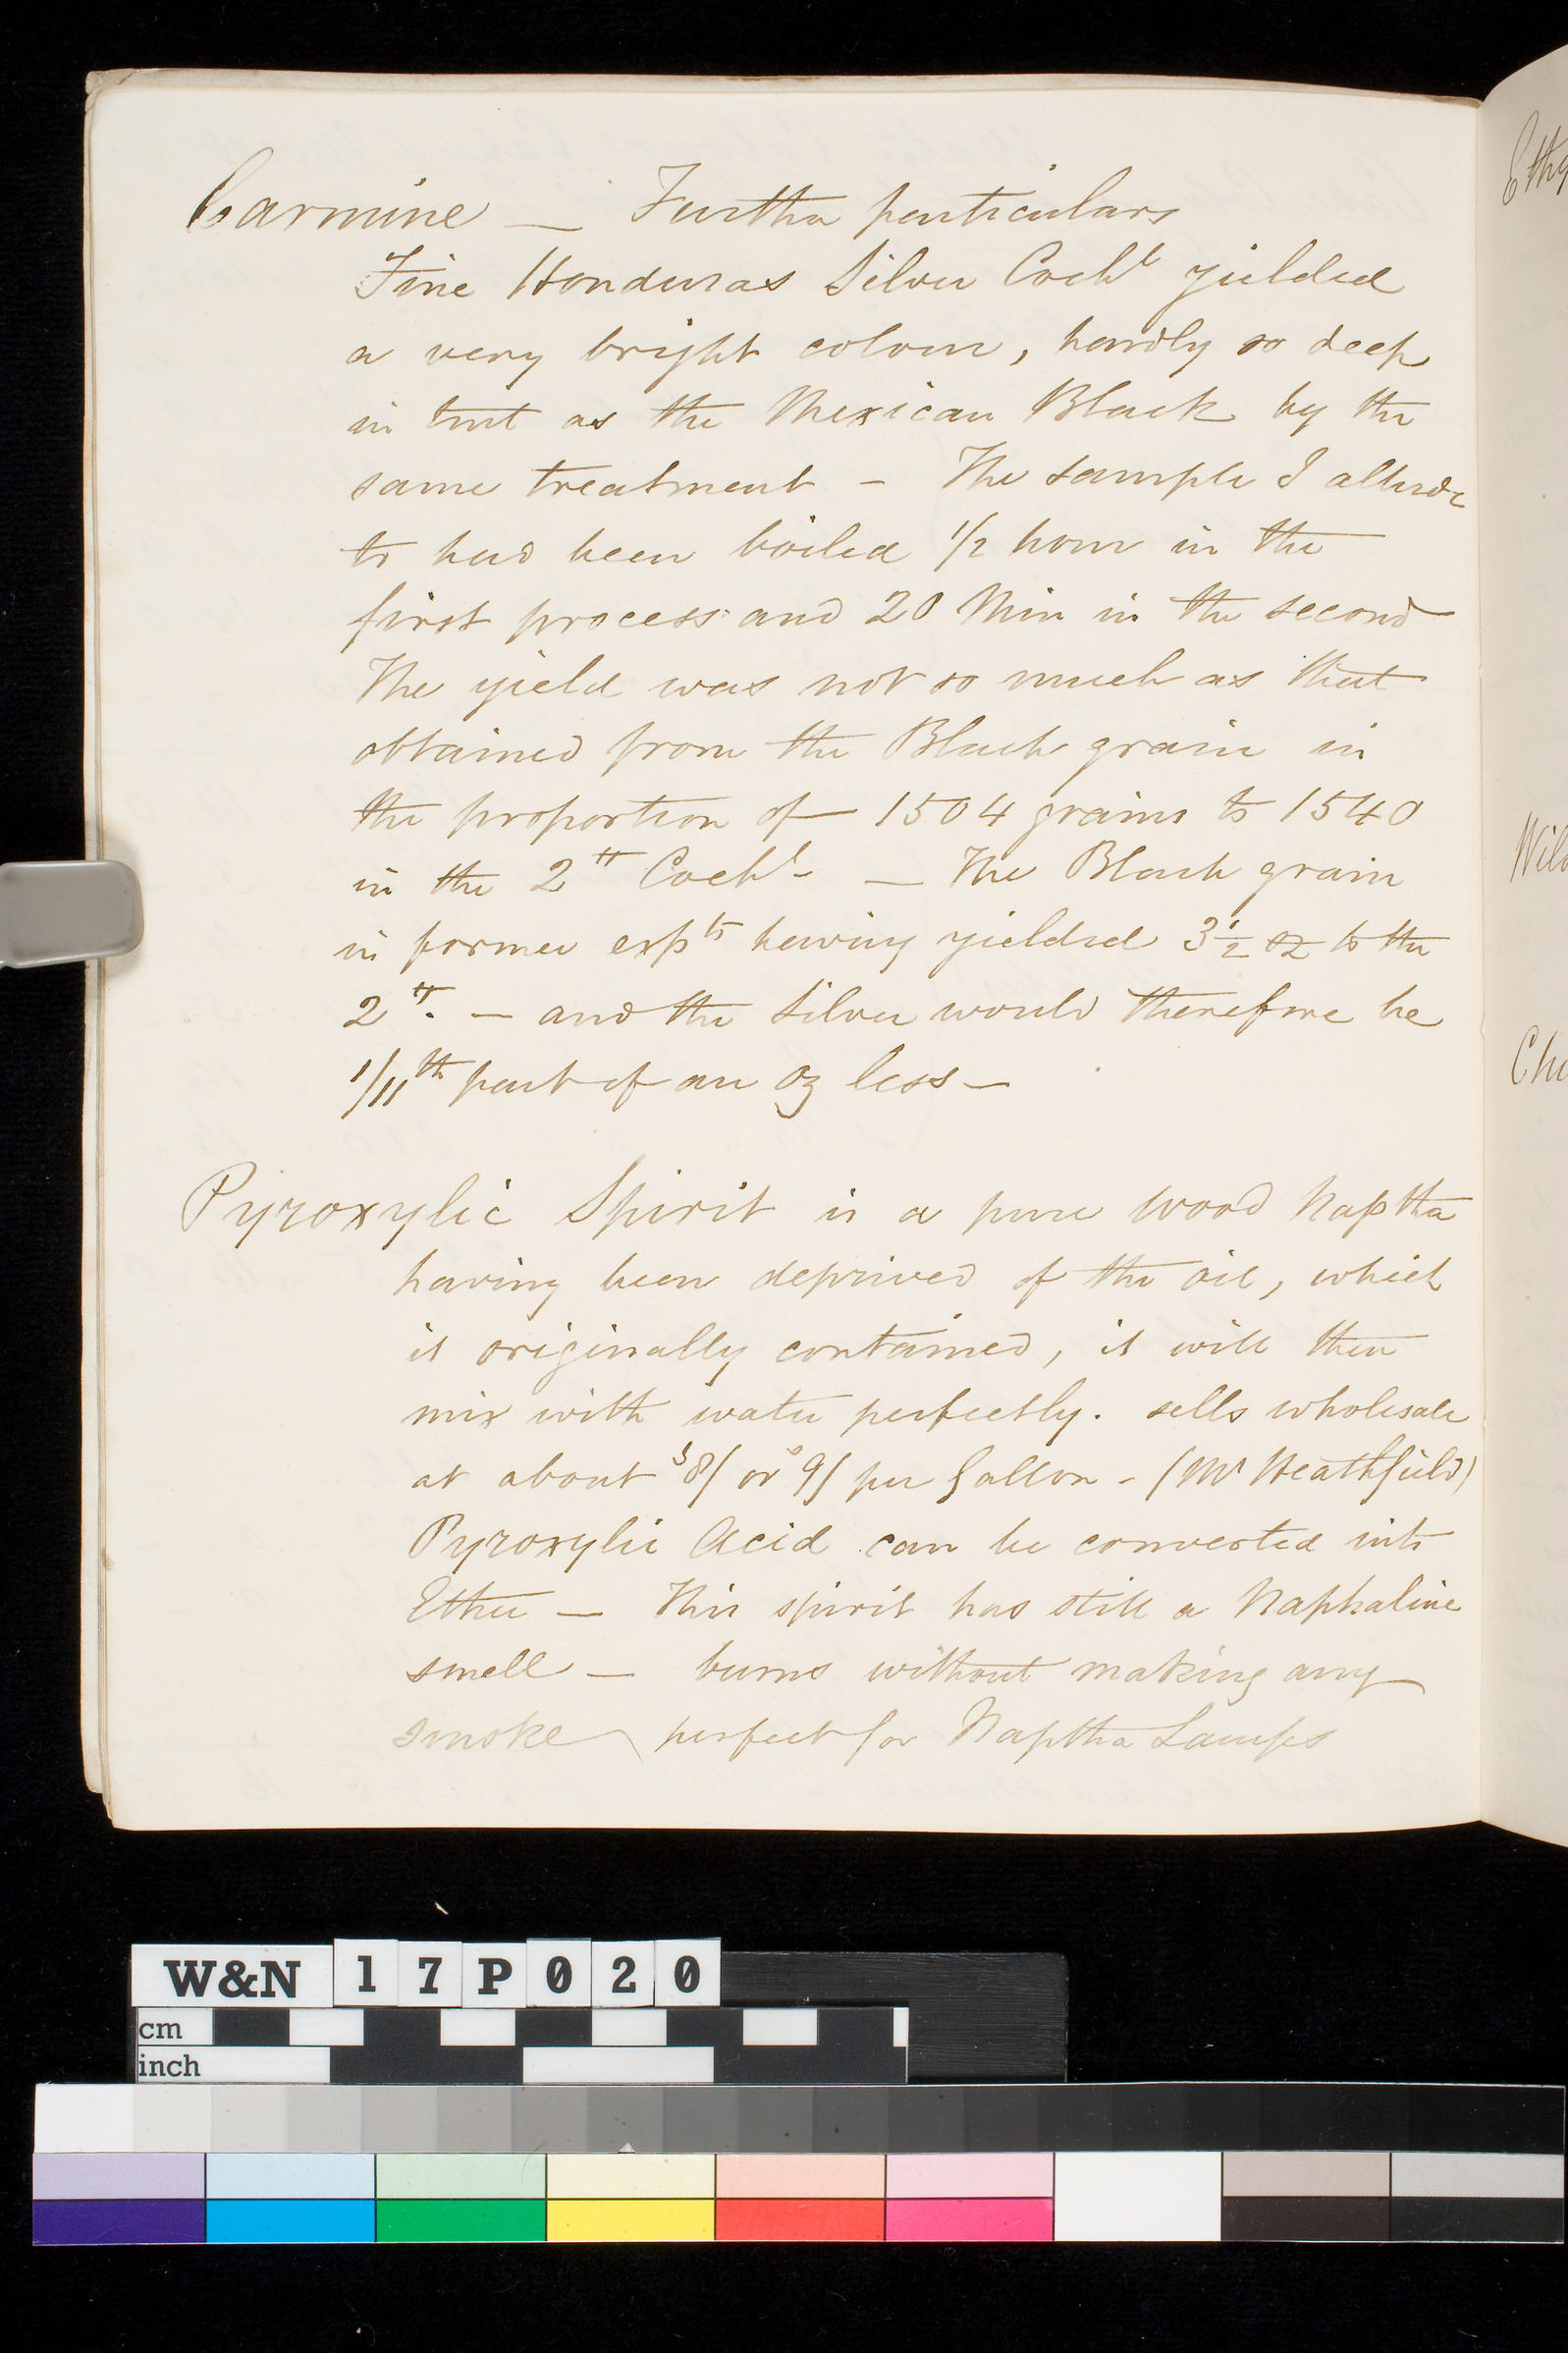 Carmine — Further particulars
Fine Honduras Silver Coch^l yielded
a very bright colour, hardly so deep
in tint as the Mexican Black by the
same treatment – The sample I allude
to had been boiled 1/2 hour in the
first process and 20 Min in the second
The yield was not so much as that
obtained from the Black grain in
the proportion of 1504 grains to 1540
in the 2 ℔ Coch^l – — The Black grain
in former exp^ts having yielded 3 1/2 oz to the
2 ℔. — and the silver would therefore be
1/11^th part of an oz less —
Pyroxylic Spirit is a pure Wood Naptha
having been deprived of the oil, which
it originally contained, it will then
mix with water perfectly. sells wholesale
at about ^s8/ or ^s9/ per Gallon - (Mr Heathfield)
Pyroxylic Acid can be converted into
Ether — This spirit has still a Naphaline
smell — burns without making any
smoke perfect for Naptha Lamps
Ethe
Wil
Ch
W&N 17P020
cm
inch